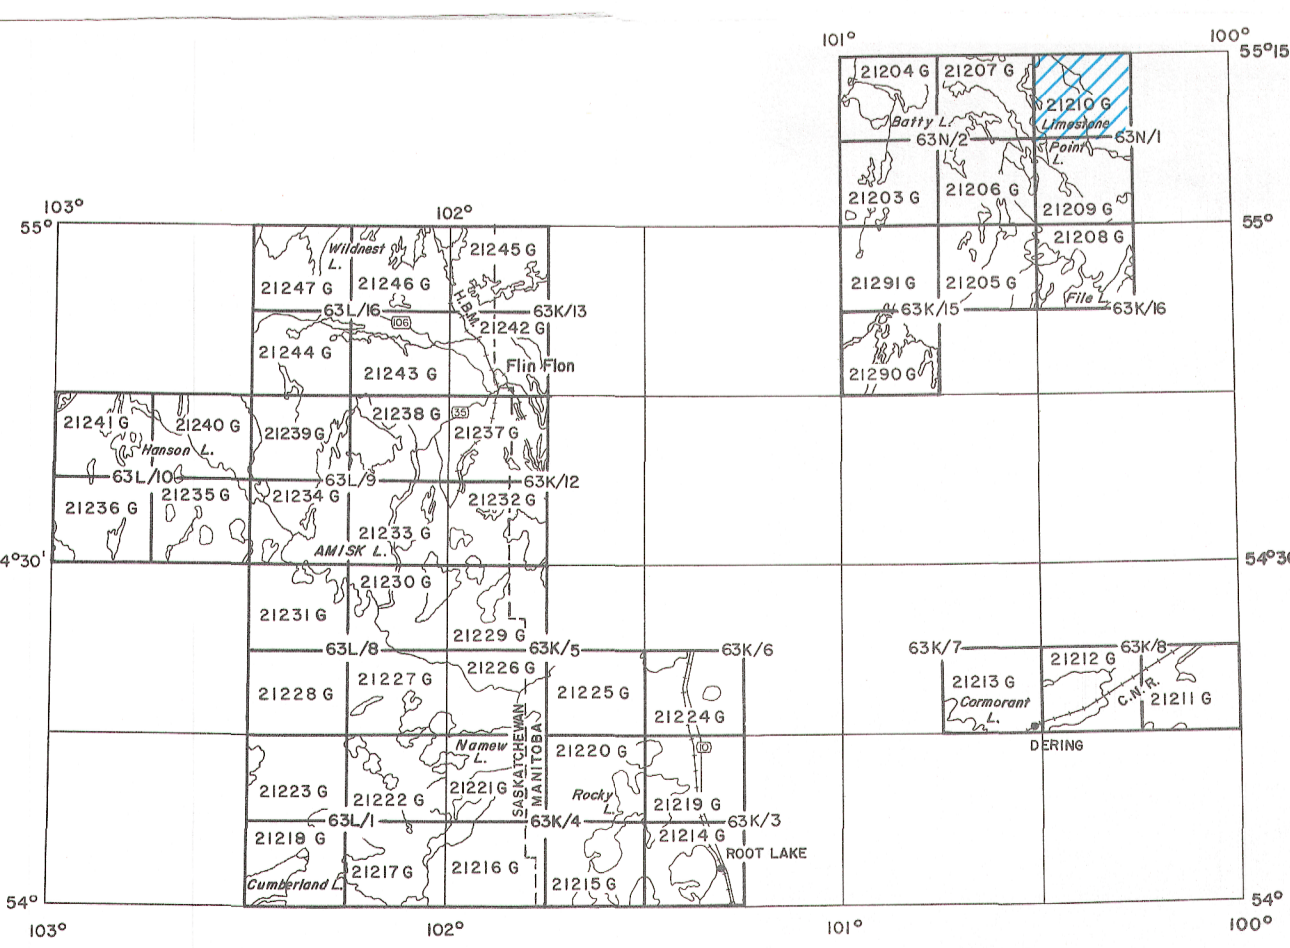 101°
100°
55°15
21204 G
21207 G
21210 G
Batty L.
Limestone
63N/2
63N/1
Point
L.
21203 G
21206 G
21209 G
103°
102°
55°
55°
21208 G
Wildnest
L.
21245 G
21247 G
21246 G
21291 G
21205 G
File L.
H.B.M.
63L/16
63K/13
63K/15
63K/16
106
21242 G
21244 G
21243 G
Flin Flon
21290 G
21241 G
21240 G
21239 G
21238 G
35
21237 G
Hanson L.
63L/10
63L/9
63K/12
21236 G
21235 G
21234 G
21232 G
21233 G
AMISK L.
4°30'
54°30
21230 G
21231 G
21229 G
63L/8
63K/5
63K/6
63K/7
63K/8
21228 G
21227 G
21226 G
21225 G
21224 G
21213 G
21212 G
21211 G
Cormorant
L.
C.N.R.
DERING
SASKATCHEWAN
MANITOBA
Namew
L.
21220 G
10
21223 G
21222 G
21221 G
Rocky
L.
21219 G
63L/1
63K/4
63K/3
21218 G
21214 G
ROOT LAKE
Cumberland L.
21217 G
21216 G
21215 G
54°
54°
103°
102°
101°
100°